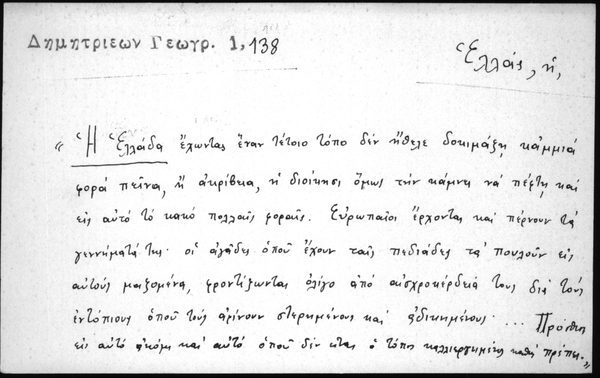 Δημητριεων Γεωγρ. 1, 138
Ἑλλάς, ἡ,
« Ἡ Ἑλλάδα ἔχωντας ἕναν τέτοιο τόπο δὲν ἤθελε δοκιμάξῃ κἀμμιά
φορά πεῖνα, ἤ ἀκρίβεια, ἡ διοίκησι ὅμως τὴν κάμνει νὰ πέφτῃ καὶ
εἰς αὐτό τό κακό πολλαῖς φοραῖς. Εὐρωπαῖοι ἔρχονται καὶ πέρνουν τὰ
γεννήματά της· οἱ ἀγάδες ὁποῦ ἔχουν ταῖς πεδιάδες τὰ πουλοῦν εἰς
αὐτούς μαζομένα, φροντίζωντας ὀλίγο ἀπό αἰσχροκέρδειά τους διὰ τούς
ἐντόπιους ὁποῦ τούς ἀφίνουν στερημένους καὶ ἀδικημένους ... Πρόσθες
εἰς αὐτό ἀκόμι καὶ αὐτό ὁποῦ δὲν εἶναι ὁ τόπος καλλιεργημένος καθὼς πρέπει. »